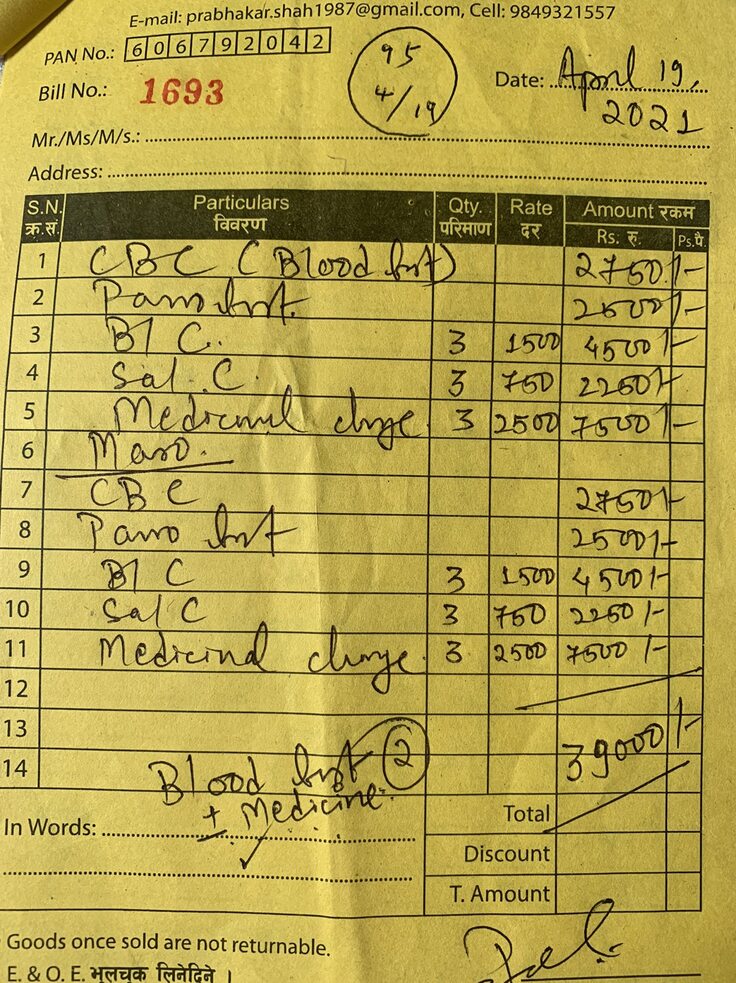 E-mail: prabhakar.shah1987@gmail.com, Cell: 9849321557
PAN No.: 606792042
95
4/19
Date: April 19, 2021
Bill No.: 1693
Mr./Ms/M/s.:
Address:
S.N. क्र.सं. Particulars विवरण Qty. परिमाण Rate दर Amount रकम Rs. रु. Ps.पै.
1 CBC (Blood 2750/-
2 2500/-
3 Bl C. 3 1500 4500/-
4 Sal. C. 3 750 2250/-
5 charge 3 2500 7500/-
6
7 CBC 2750/-
8 2500/-
9 Bl C 3 1500 4500/-
10 Sal C 3 750 2250/-
11 Medicinal charge. 3 2500 7500/-
12
13
39000/-
14
Blood 2
+ Medicine.
Total
In Words:
Discount
T. Amount
Goods once sold are not returnable.
E. & O. E. भूलचुक लिनेदिने ।